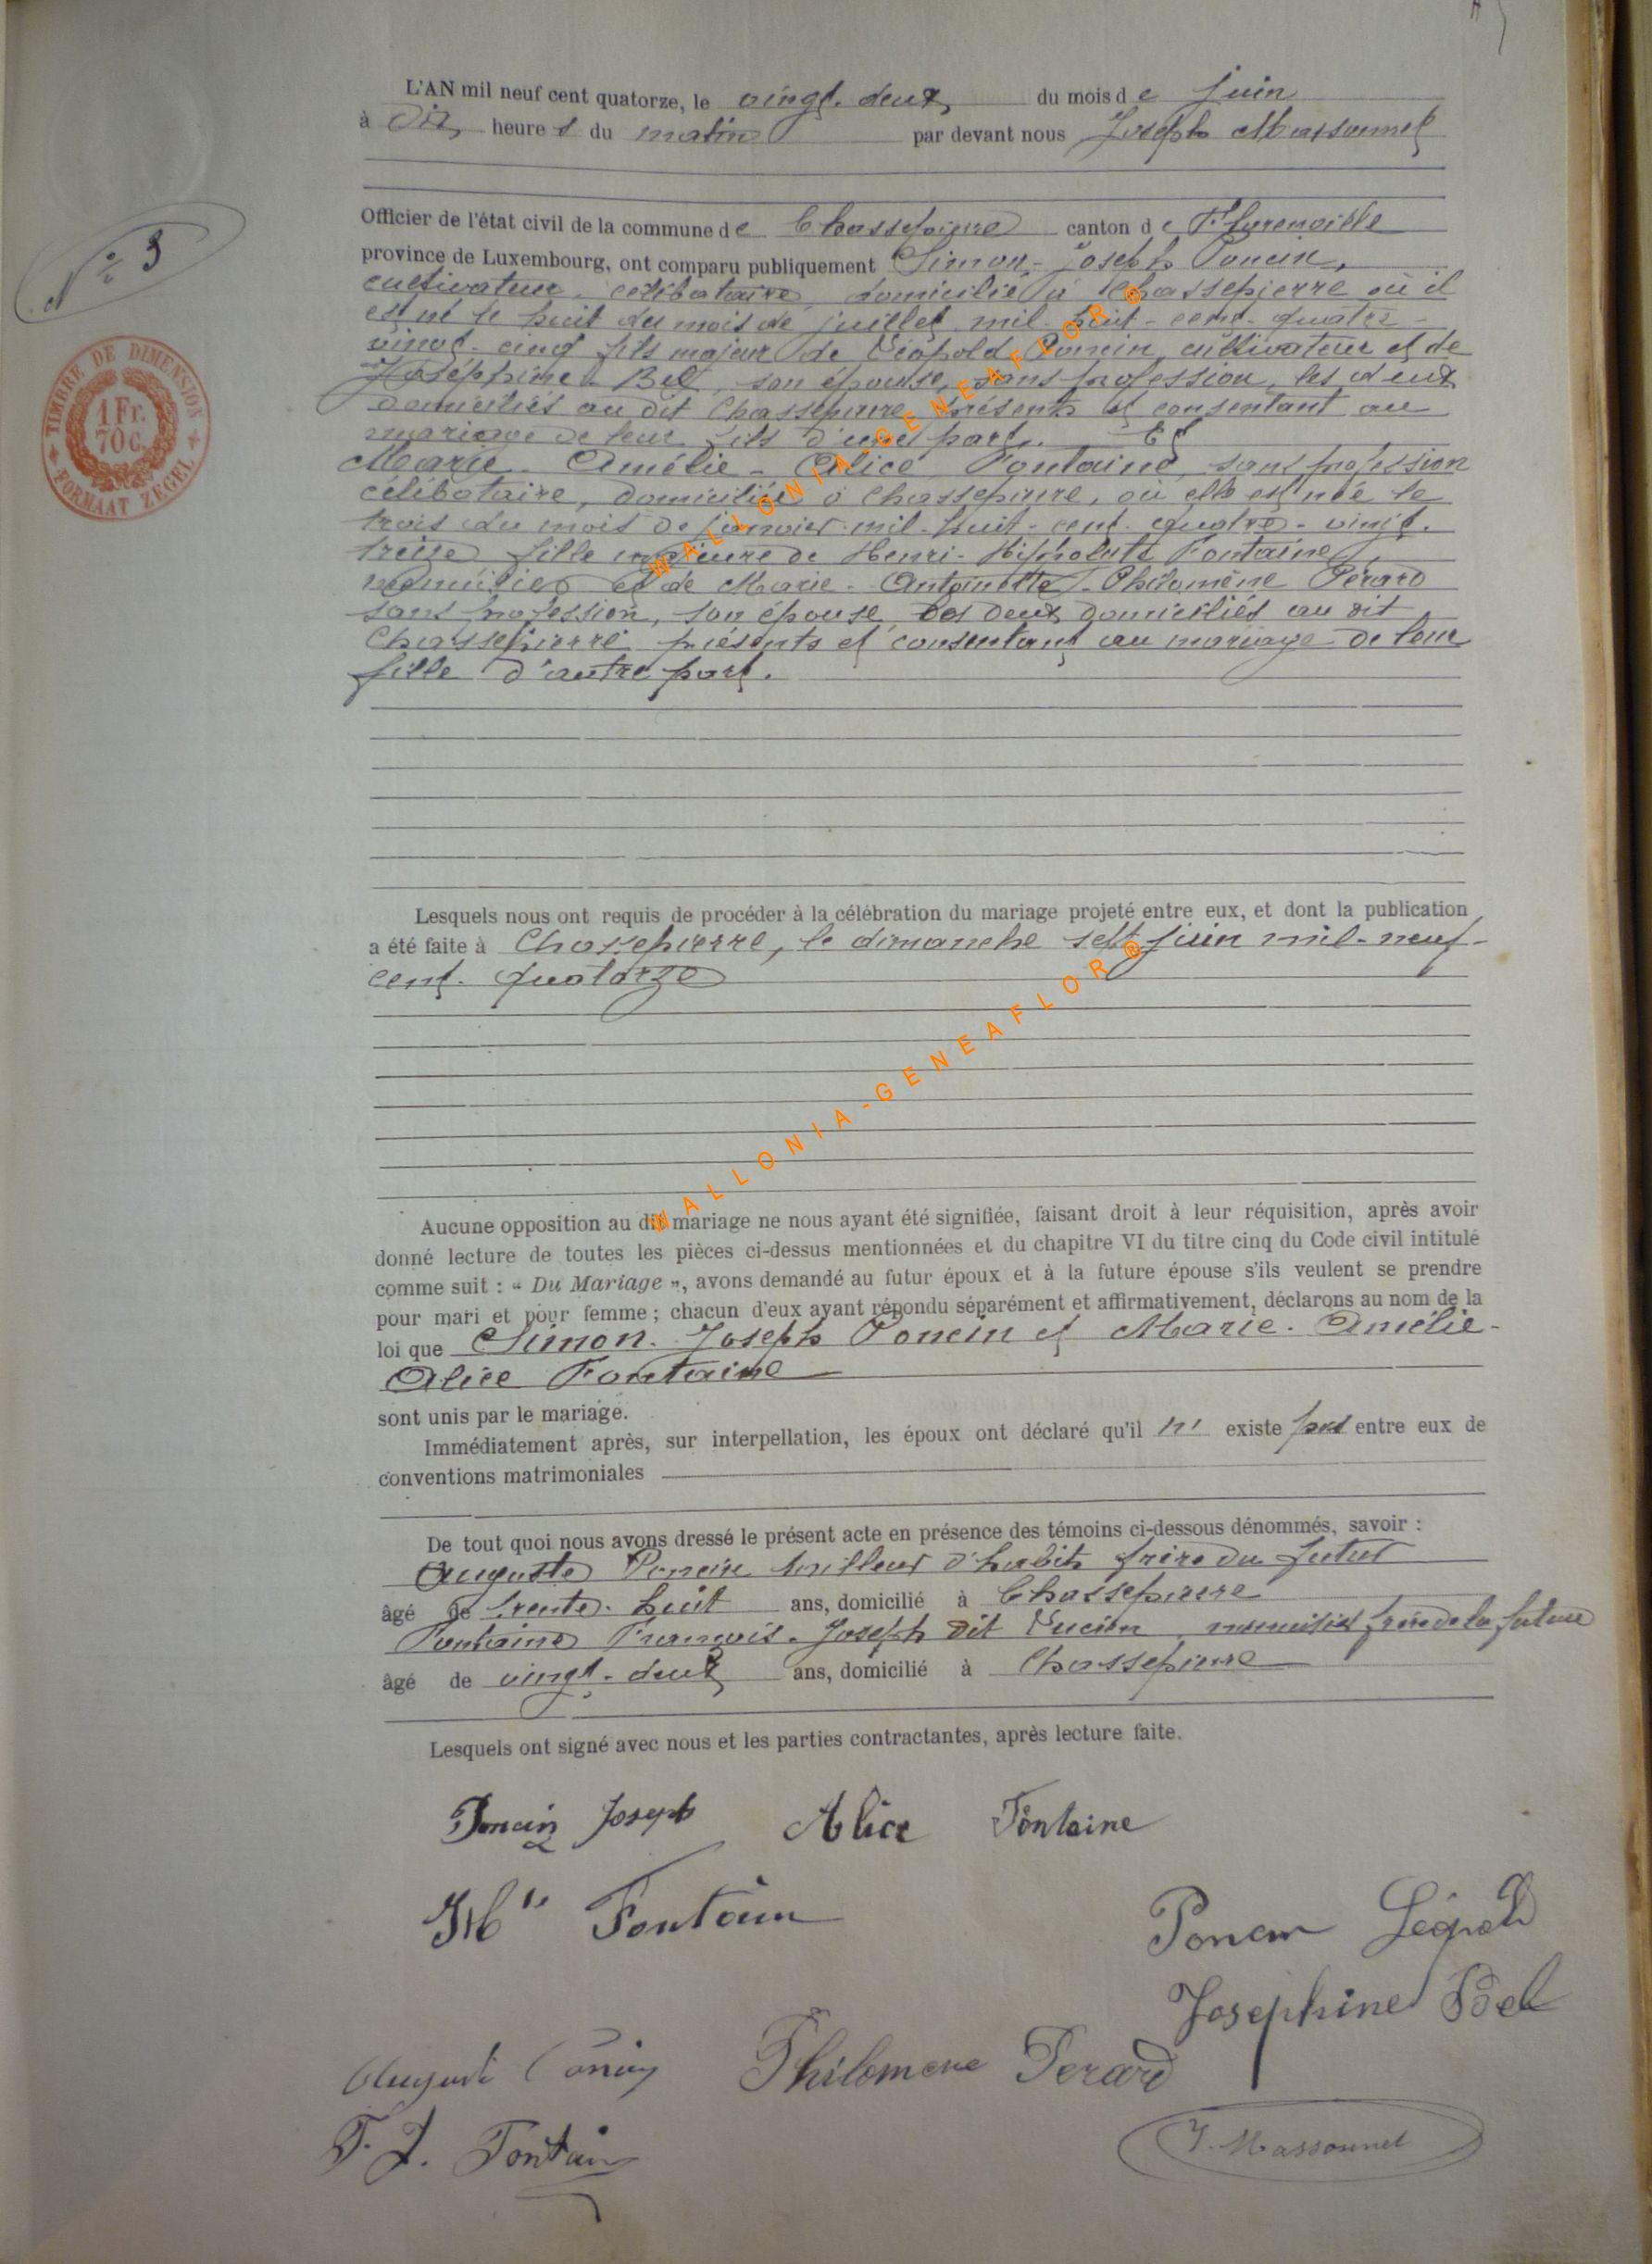 L'AN mil neuf cent quatorze, le vingt-deux du mois de juin
à Dix heures du matin par devant nous Joseph Massonnet
Officier de l'état civil de la commune de Chassepierre canton de Florenville
N° 3
province de Luxembourg, ont comparu publiquement Simon-Joseph Poncin,
cultivateur, célibataire, domicilié à Chassepierre où il
est né le huit du mois de juillet mil-huit-cent-quatre-
vingt-cinq fils majeur de Léopold Poncin, cultivateur et de
Joséphine Bel, son épouse, sans profession, les deux
domiciliés au dit Chassepierre, présents et consentant au
mariage de leur fils d'une part. Et
Marie-Amélie-Alice Fontaine, sans profession
célibataire, domiciliée à Chassepierre, où elle est née le
trois du mois de janvier mil-huit-cent-quatre-vingt-
treize fille majeure de Henri-Hippolyte Fontaine,
menuisier et de Marie-Antoinette-Philomène Pérard
sans profession, son épouse, les deux domiciliés au dit
Chassepierre présents et consentant au mariage de leur
fille d'autre part.
TIMBRE DE DIMENSION
1 Fr.
70 c.
FORMAAT ZEGEL
WALLONIA-GENEAFLOR®
Lesquels nous ont requis de procéder à la célébration du mariage projeté entre eux, et dont la publication
a été faite à Chassepierre, le dimanche sept juin mil-neuf-
cent-quatorze
WALLONIA-GENEAFLOR®
Aucune opposition au dit mariage ne nous ayant été signifiée, faisant droit à leur réquisition, après avoir
donné lecture de toutes les pièces ci-dessus mentionnées et du chapitre VI du titre cinq du Code civil intitulé
comme suit : « Du Mariage », avons demandé au futur époux et à la future épouse s'ils veulent se prendre
pour mari et pour femme ; chacun d'eux ayant répondu séparément et affirmativement, déclarons au nom de la
loi que Simon-Joseph Poncin et Marie-Amélie-
Alice Fontaine
sont unis par le mariage.
Immédiatement après, sur interpellation, les époux ont déclaré qu'il n' existe pas entre eux de
conventions matrimoniales
De tout quoi nous avons dressé le présent acte en présence des témoins ci-dessous dénommés, savoir :
Auguste Poncin tailleur d'habits frère du futur
âgé de trente-huit ans, domicilié à Chassepierre
Fontaine François-Joseph dit Lucien, menuisier frère de la future
âgé de vingt-deux ans, domicilié à Chassepierre
Lesquels ont signé avec nous et les parties contractantes, après lecture faite.
Poncin Joseph Alice Fontaine
Fontaine
Poncin Léopold
Josephine Bel
Auguste Poncin Philomene Perard
F. J. Fontaine
J. Massonnet